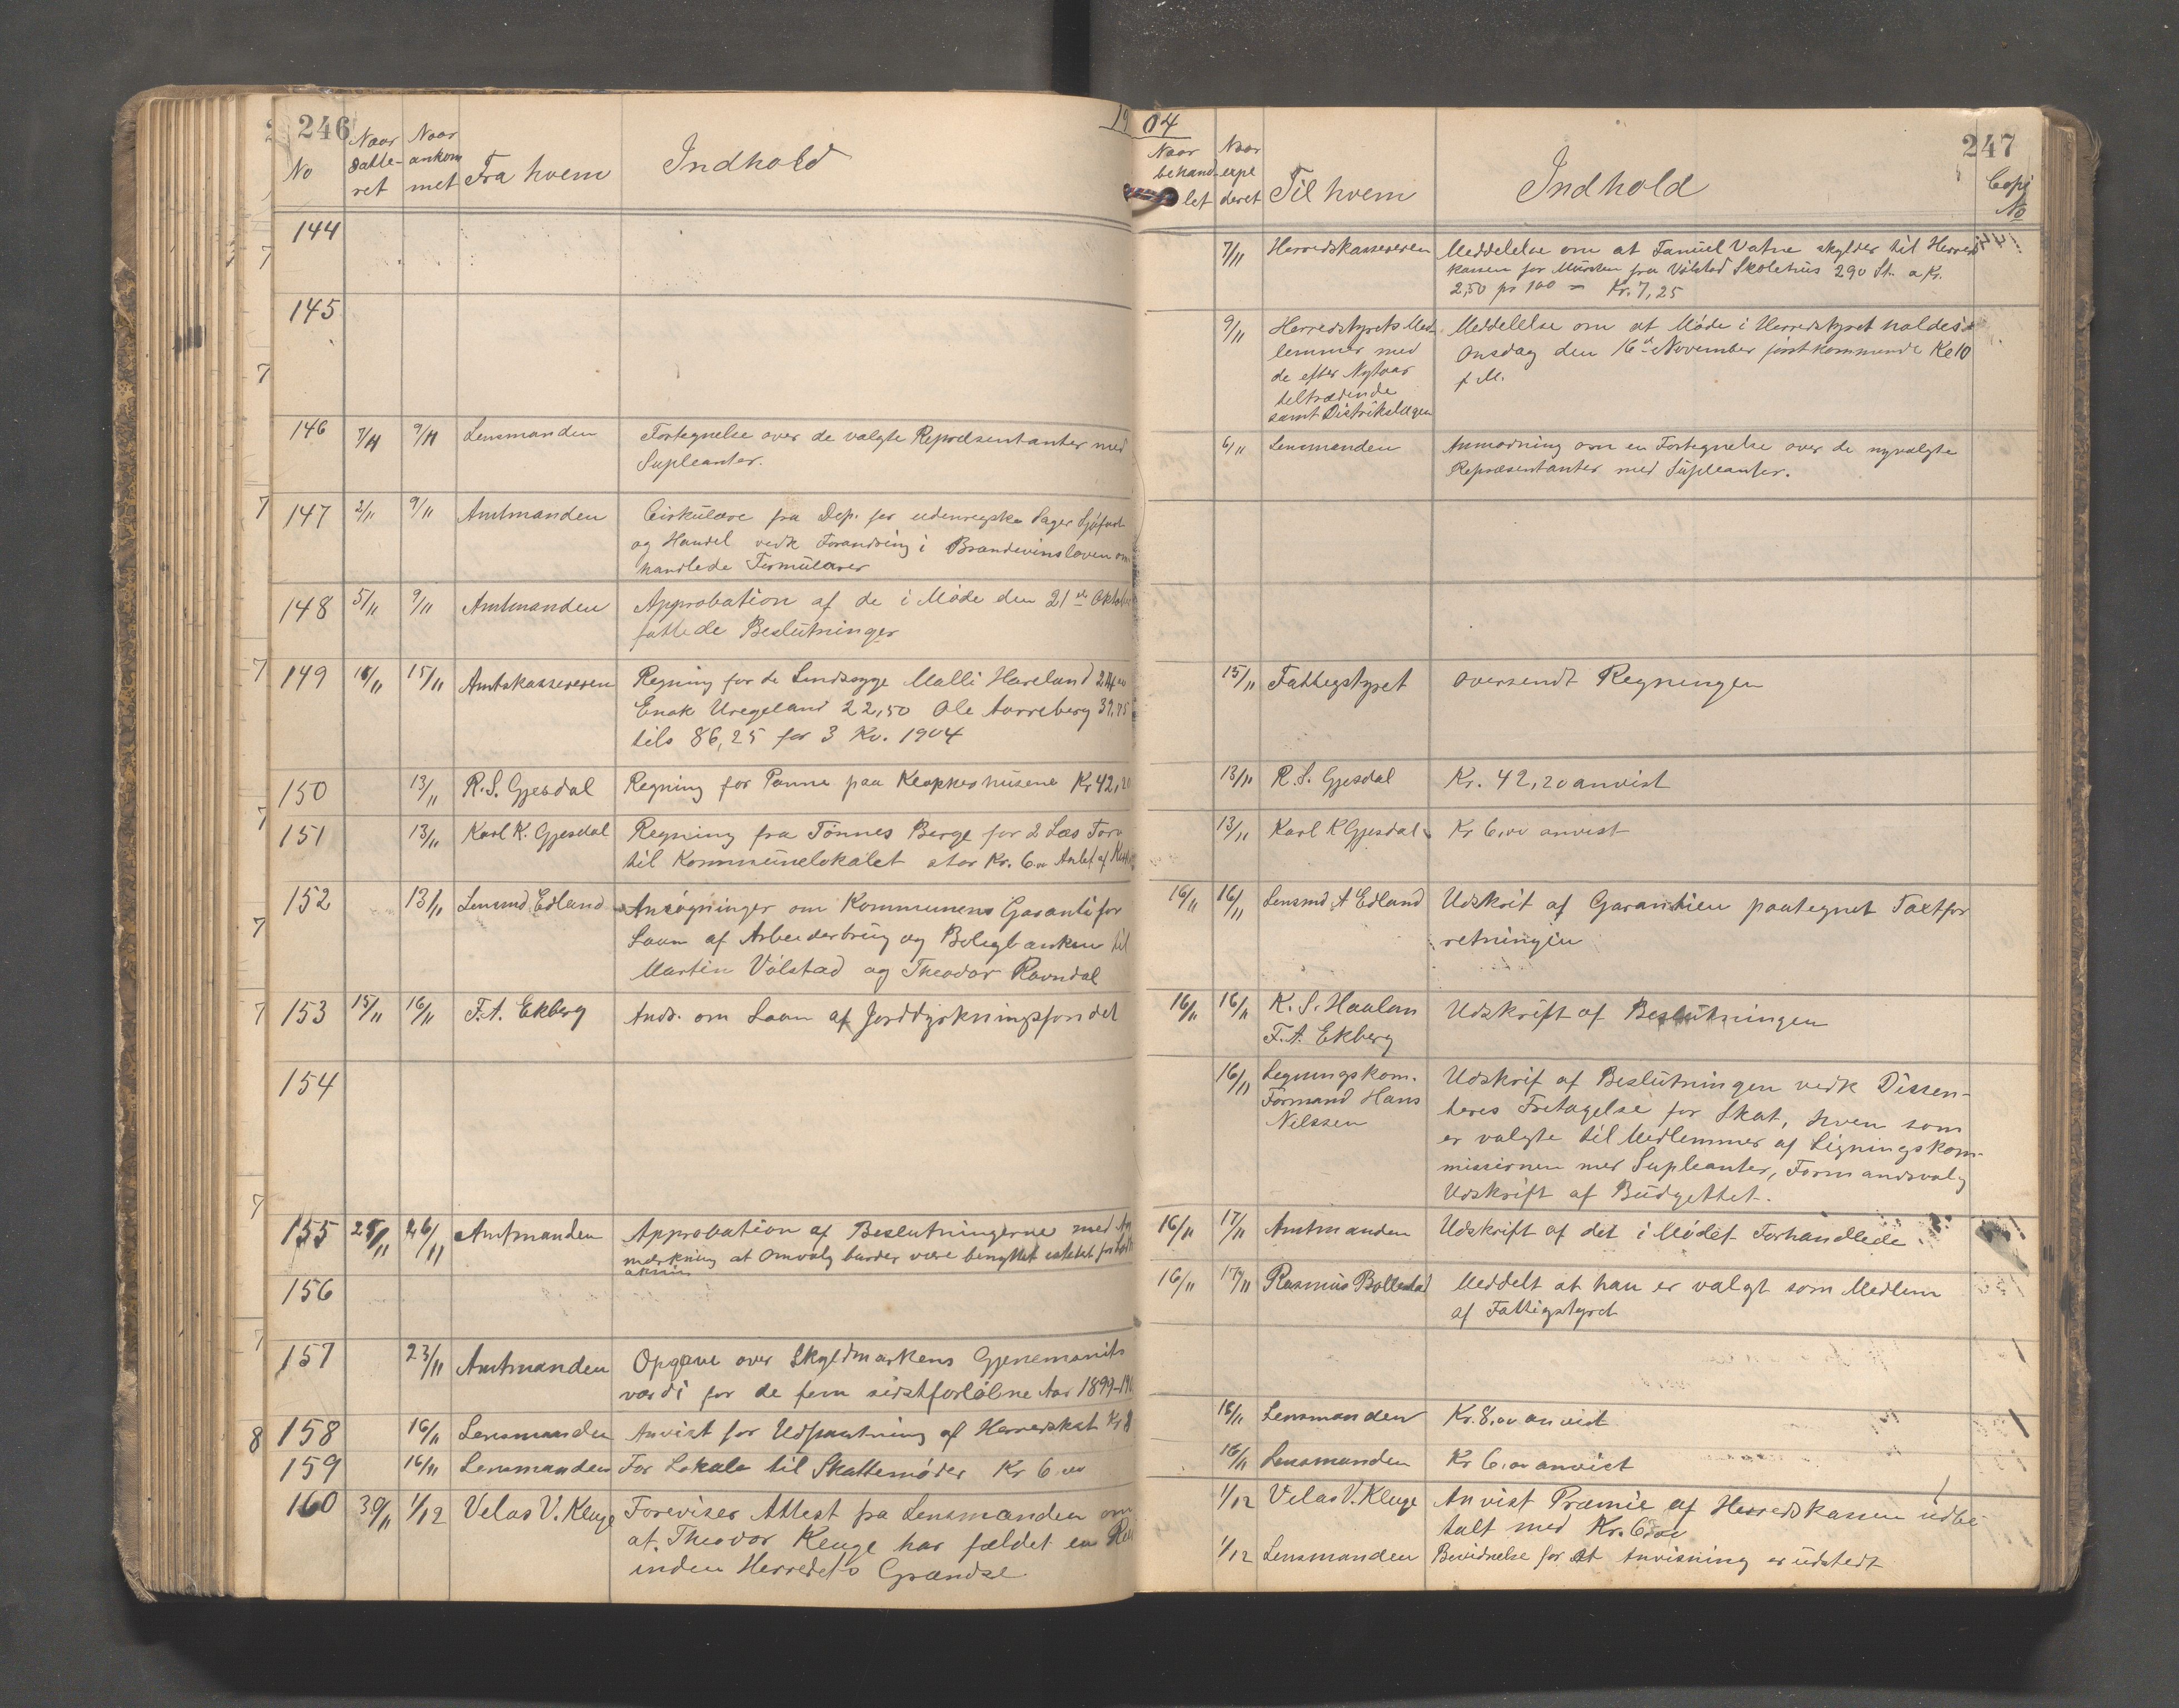 246
1904
247
No
Naar datte-ret
Naar ankommet
Fra hvem
Indhold
Naar behand-let
Naar expederet
Til hvem
Indhold
Copi No
144
7/11 Herredskassereren Meddelelse om at Tanuel Vatne skylder til Herreds
kassen for Mursten fra Vølstad Skolehus 290 St. a Kr.
2,50 pr 100 = Kr. 7,25
145
9/11 Herredstyrets Med- Meddelelse om at Møde i Herredstyret holdes
lemmer med Onsdag den 16de November førstkommende Kl 10
de efter Nytaar f. M.
tiltrædende
samt Distriktslægen
146 7/11 9/11 Lensmanden Fortegnelse over de valgte Repræsentanter med
Supleanter.
6/11 Lensmanden Anmodning om en Fortegnelse over de nyvalgte
Repræsentanter med Supleanter.
147 2/11 9/11 Amtmanden Cirkulære fra Dep. for udenrigske Sager Sjøfart
og Handel vedk Forandring i Brændevinsloven om
handlede Formularer
148 5/11 9/11 Amtmanden Approbation af de i Møde den 21de Oktober
fattede Beslutninger
149 15/11 Amtskassereren Regning for de Sindssyge Malli Haveland 24,00
Enok Uregeland 22,50 Ole Aarreberg 39,75
tils 86,25 for 3 Kv. 1904
15/11 Fattigstyret oversendt Regningen
150 13/11 R. S. Gjesdal Regning for Panne paa Kloppeshusene Kr 42,20
13/11 R. S. Gjesdal Kr. 42,20 anvist
151 13/11 Karl K. Gjesdal Regning fra Tønnes Berge for 2 Læs Torv
til Kommunelokalet stor Kr. 6.00
13/11 Karl K Gjesdal Kr 6,00 anvist
152 13/11 Lensmd Edland Ansøgninger om Kommunens Garanti for
Laan af Arbeiderbrug og Boligbanken til
Martin Vølstad og Theodor Ravndal
16/11 16/11 Lensmd A Edland Udskrit af Garantien paategnet Taxtfor
retningen
153 15/11 16/11 F. A. Ekberg Ands. om Laan af Jorddyrkningsfondet
16/11 16/11 K. S. Haaland Udskrift af Beslutningen
F. A. Ekberg
154
16/11 Legningskom. Udskrif af Beslutningen vedk Dissen-
Formand Hans teres Fritagelse for Skat, hvem som
Nilssen er valgte til Medlemmer af Ligningskom-
missionen med Supleanter, Formandsvalg
Udskrift af Budgettet.
155 25/11 26/11 Amtmanden Approbation af Beslutningerne med An
mærkning at Omvalg burder være benyttet istedet for
16/11 17/11 Amtmanden Udskrift af det i Mødet Forhandlede
156
16/11 17/11 Rasmus Bollestad Meddelt at han er valgt som Medlem
af Fattigstyret
157 23/11 Amtmanden Opgave over Skyldmarkens Gjenemsnits
værdi for de fem sidstforløbne Aar 1899-19
158 16/11 Lensmanden Anvist for Udpantning af Herredskat Kr 8
16/11 Lensmanden Kr. 8,00 anvist
159 16/11 Lensmanden For Lokale til Skattemøder Kr 6 00
16/11 Lensmanden Kr 6,00 anvist
160 30/11 1/12 Velas V. Kluge Foreviser Attest fra Lensmanden om
at Theodor Kluge har fældet en
inden Herredets Grændse.
1/12 Velas V. Kluge Anvist Præmie af Herredskassen udbe
talt med Kr. 6,00
1/12 Lensmanden Bevidnelse for at Anvisning er udstedt